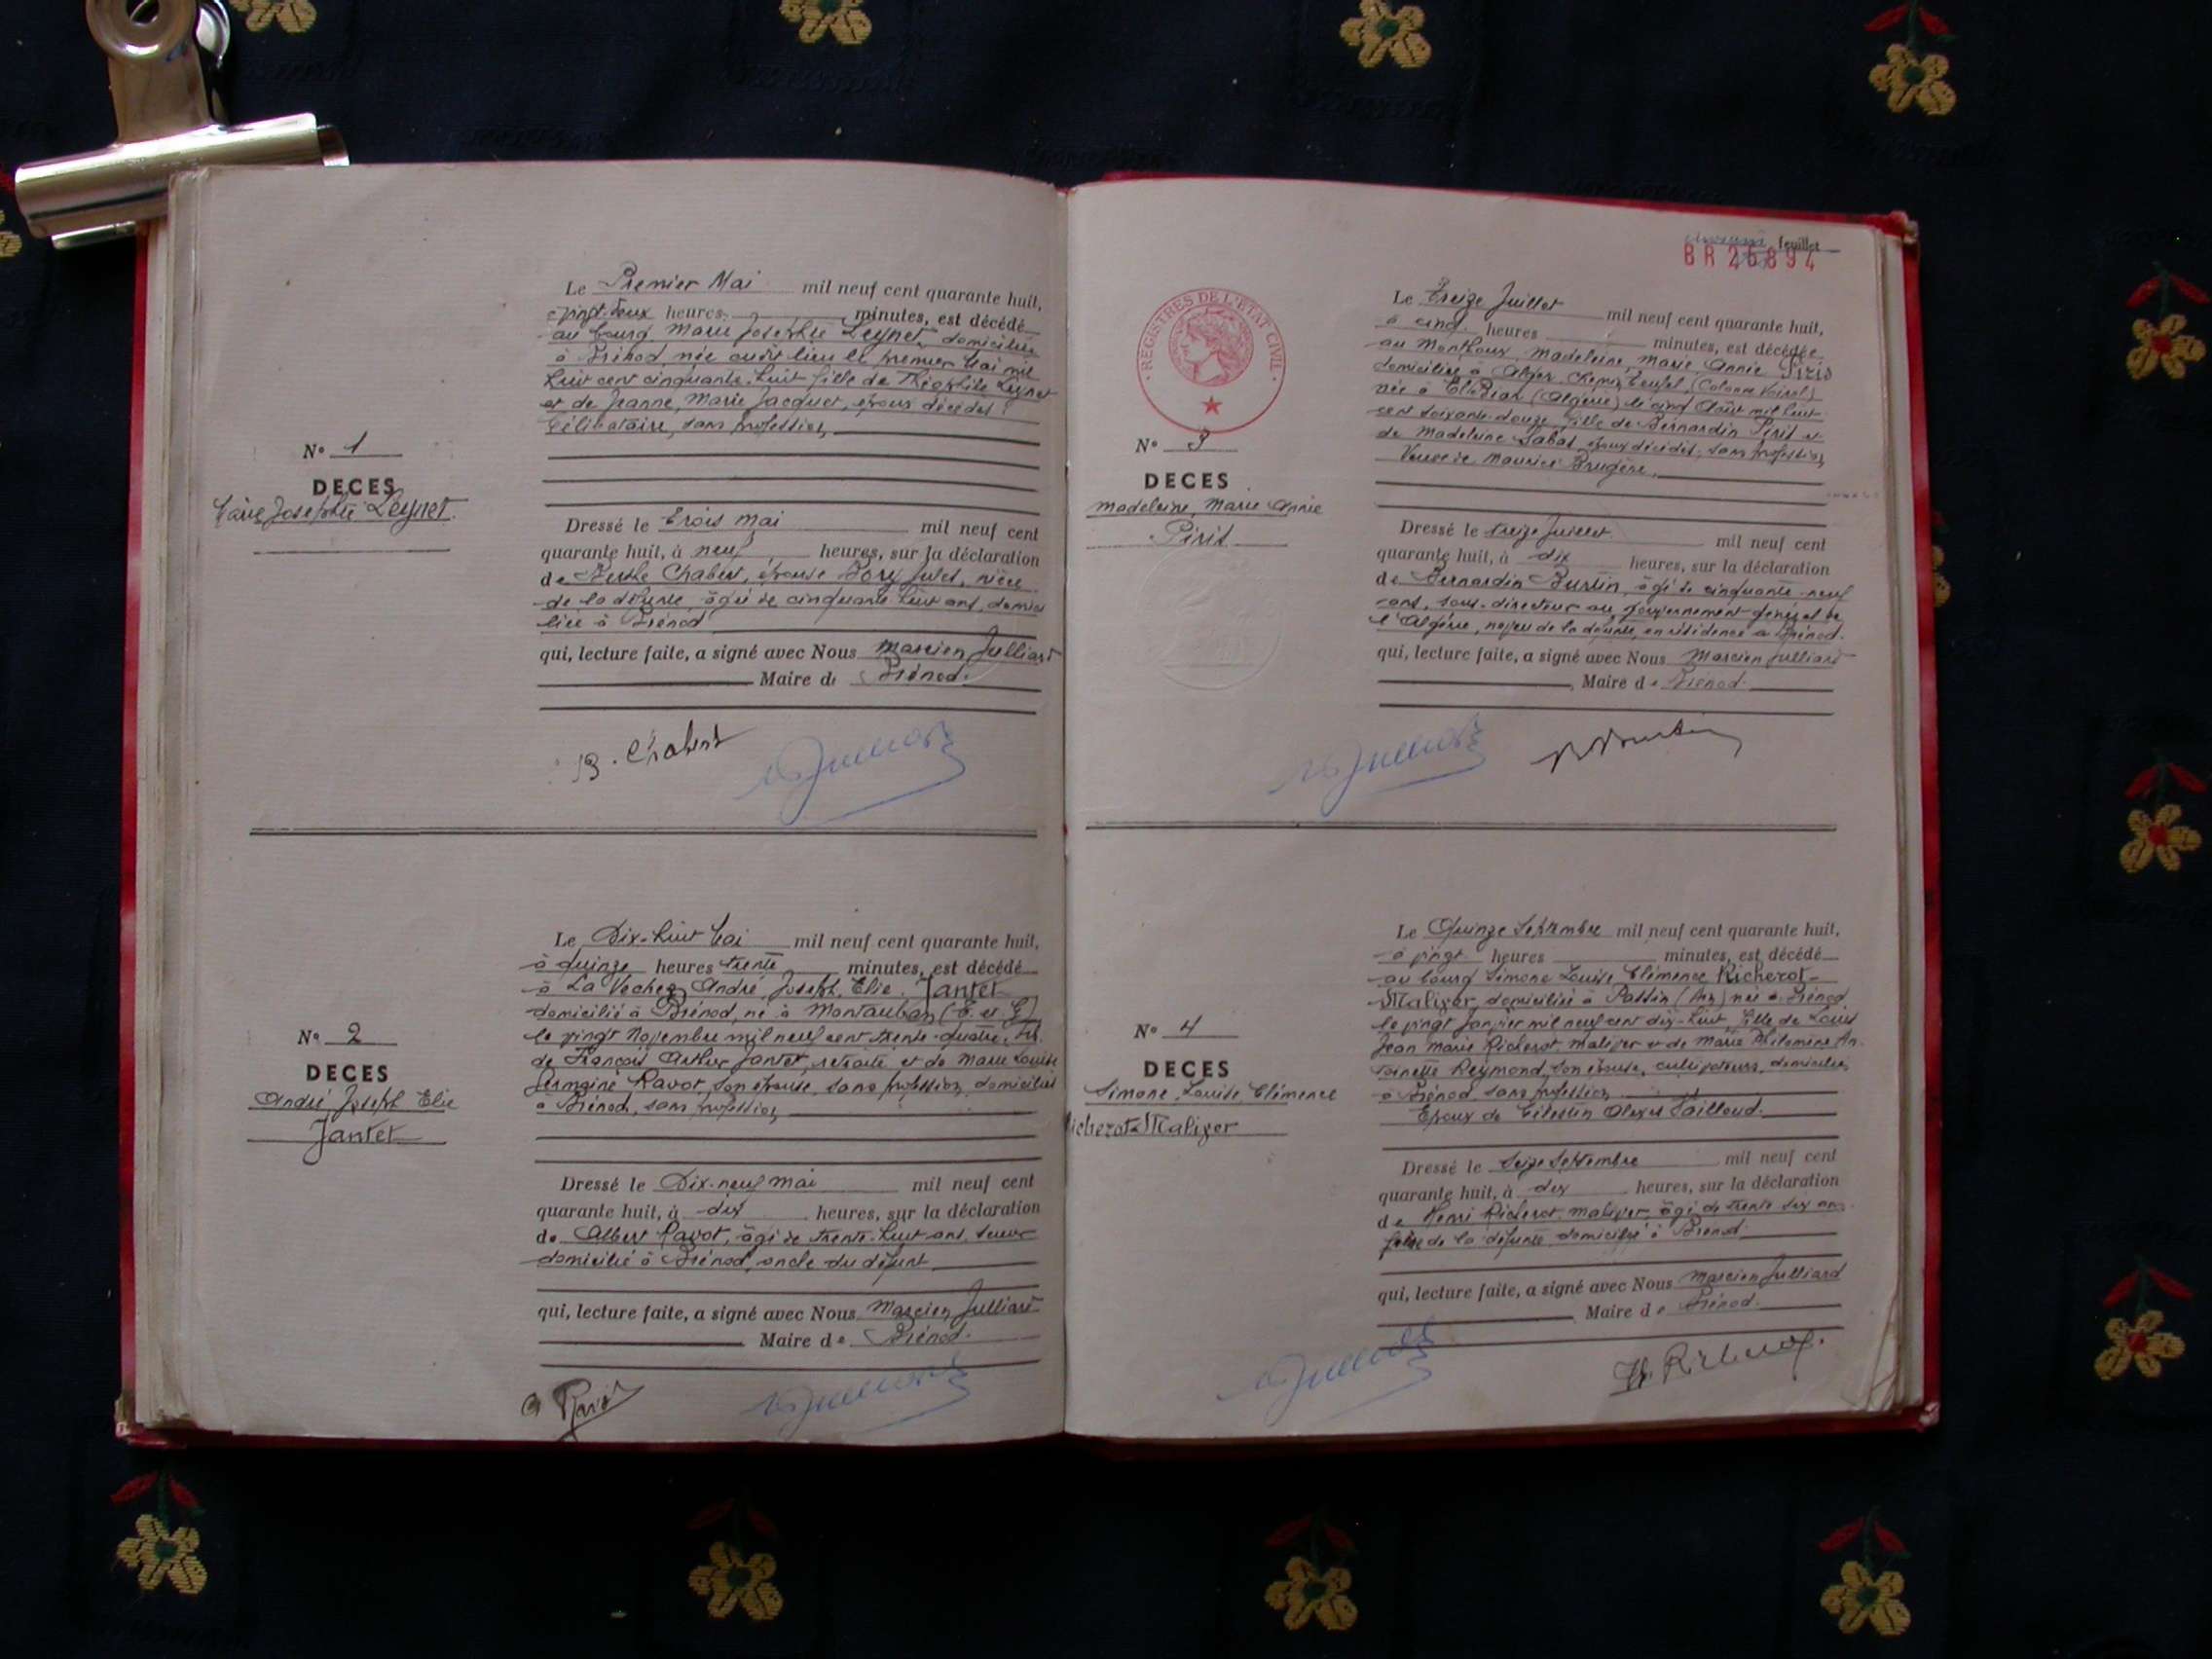 Le Premier Mai mil neuf cent quarante huit,
vingt-deux heures minutes, est décédé
au bourg Marie Josephte Leynet, domiciliée
à Brénod née audit lieu le premier Mai mil
huit cent cinquante-huit fille de Théophile Leynet
et de Jeanne, Marie Jacquet, époux décédés
Célibataire, sans profession
N° 1
DECES
Marie Josephte Leynet
Dressé le trois Mai mil neuf cent
quarante huit, à neuf heures, sur la déclaration
de Berthe Chabert, épouse Jules, nièce
de la défunte, âgée de cinquante-huit ans, domici
liée à Brénod
qui, lecture faite, a signé avec Nous Marcien Julliard
Maire de Brénod.
B. Chabert
Julliard
Le Dix-huit Mai mil neuf cent quarante huit,
à quinze heures trente minutes, est décédé
à La Vechez André, Joseph, Elie Jantet
domicilié à Brénod, né à Montauban (T. et G)
le vingt Novembre mil neuf cent trente-quatre, fils
de François Arthur Jantet, retraité et de Marie Louise
Germaine Ravot, son épouse, sans profession, domiciliés
à Brénod, sans profession
N° 2
DECES
André Joseph Elie
Jantet
Dressé le Dix-neuf Mai mil neuf cent
quarante huit, à dix heures, sur la déclaration
de Albert Ravot, âgé de trente-huit ans,
domicilié à Brénod, oncle du défunt
qui, lecture faite, a signé avec Nous Marcien Julliard
Maire de Brénod.
A Ravot
Julliard
feuillet
BR 25894
REGISTRES DE L'ETAT CIVIL
Le Treize Juillet mil neuf cent quarante huit,
à cinq heures minutes, est décédée
au Monthoux, Madeleine, Marie Annie Piris
domiciliée à Alger, Chemin (Colonne Voirol)
née à El-Biar (Algérie) le cinq Août mil huit
cent soixante-douze, fille de Bernardin Piris et
de Madeleine Labat, époux décédés, sans profession
Veuve de Maurice Brugère
N° 3
DECES
Madeleine, Marie Annie
Piris
Dressé le treize Juillet mil neuf cent
quarante huit, à dix heures, sur la déclaration
de Bernardin Burtin, âgé de cinquante-neuf
ans, sous-directeur au gouvernement général de
l'Algérie, neveu de la défunte, en résidence à Brénod.
qui, lecture faite, a signé avec Nous Marcien Julliard
Maire de Brénod.
Julliard
Burtin
Le Quinze Septembre mil neuf cent quarante huit,
à vingt heures minutes, est décédé
au bourg Simone Louise Clémence Richerot-
Maliger, domiciliée à Passin (Ain) née à Brénod
le vingt Janvier mil neuf cent dix-huit, fille de Louis
Jean Marie Richerot-Maliger et de Marie Philomène An-
toinette Reymond, son épouse, cultivateurs, domiciliés
à Brénod, sans profession
Epoux de Célestin Alexis Tailloud.
N° 4
DECES
Simone, Louise, Clémence
Richerot-Maliger
Dressé le seize Septembre mil neuf cent
quarante huit, à dix heures, sur la déclaration
de Henri Richerot-Maliger âgé de trente six ans
frère de la défunte domicilié à Brénod
qui, lecture faite, a signé avec Nous Marcien Julliard
Maire de Brénod.
Julliard
H. Richerot.